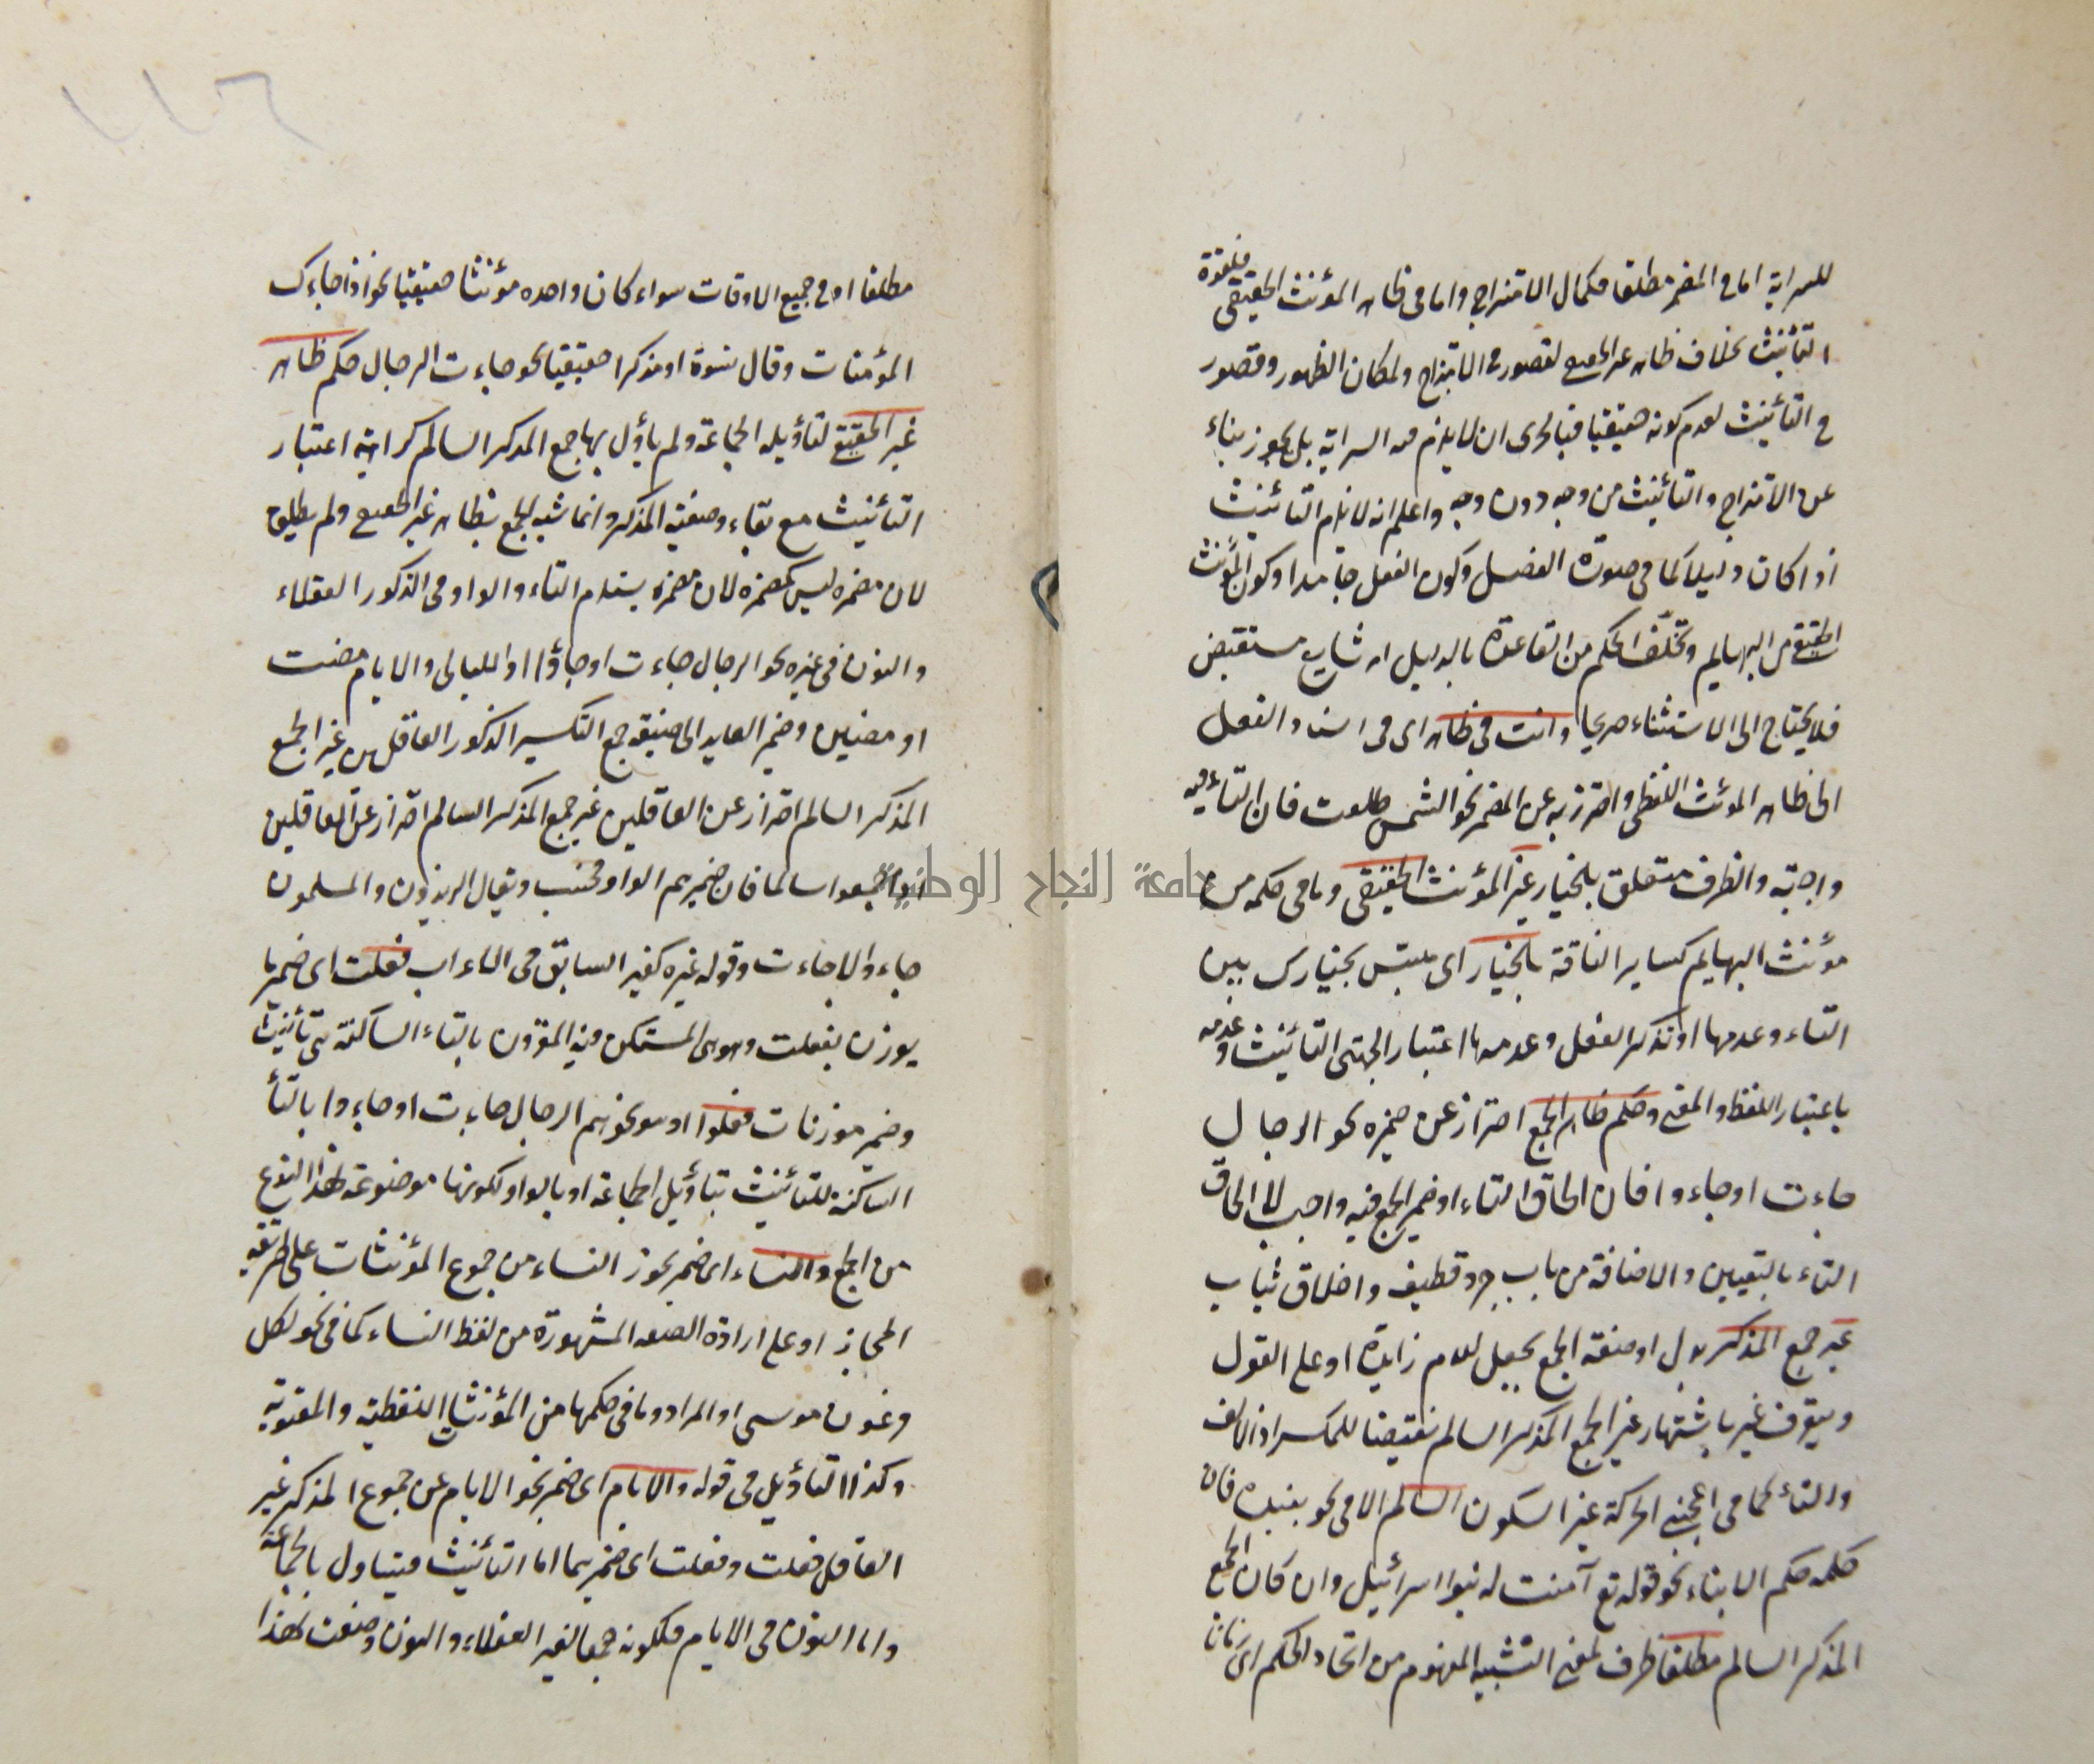 للسراية اما في المضمر مطلقا فكمال الامتزاج واما في ظاهر المؤنث الحقيقي فلقوة
التأنيث بخلاف ظاهر غير الحقيقي لقصور في الامتزاج ولمكان الظهور وقصور
في التأنيث لعدم كونه حقيقيا فبالحرى ان لا يلزم السراية بل يجوز بناء
على الامتزاج والتأنيث من وجه دون وجه واعلم انه لا يلزم التأنيث
اذا كان دليلا كما في صورة الفصل وكون الفعل جامدا وكون المؤنث
الحقيقي من البهايم وتخلف الحكم من القاعدة بالدليل امر شايع مستفيض
فلا يحتاج الى الاستثناء صريحا وانت في ظاهر اى في اسناد الفعل
الى ظاهر المؤنث اللفظي واحترز به عن المضمر نحو الشمس طلعت فان التاء فيه
واجبة والظرف متعلق بالخيار غير المؤنث الحقيقي وما في حكمه من
مؤنث البهايم كساير الناقة بالخيار اى ملتبس بخيارك بين
التاء وعدمها او تذكر الفعل وعدمه باعتبار الجهتى التأنيث وعدمه
باعتبار اللفظ والمعنى وحكم ظاهر الجمع احتراز عن ضميره نحو الرجال
جاءت او جاءوا فان الحاق التاء او ضمير الجمع فيه واجب لا الحاق
التاء بالتعيين والاضافة من باب جرد قطيفة واخلاق ثياب
غير جمع المذكر بدل او صفة الجمع بجعل اللام زايدة او على القول
وبتعرف غير باشتهار غير الجمع المذكر السالم نقيضا للمكسر اذ الالف
والتاء كما في اعجبني الحركة غير السكون السالم الا في نحو بنين فان
حكمه حكم الابناء نحو قوله تع آمنت له بنوا اسرائيل وان كان الجمع
المذكر السالم مطلقا ظرف لمعنى التشبيه المفهوم من اتحاد الحكم اى زمانا
١١٦
مطلقا او في جميع الاوقات سواء كان واحده مؤنثا حقيقيا نحو اذا جاءك
المؤمنات وقال نسوة او مذكرا حقيقيا نحو جاءت الرجال حكم ظاهر
غير الحقيقي لتأويله الجماعة ولم يأول بها جمع المذكر السالم كراهة اعتبار
التأنيث مع بقاء صيغة المذكر وانما شبه الجمع بظاهر غير الحقيقي ولم يطلق
لان مضمره ليس كمضمره لان مضمره يستلزم التاء والواو في الذكور العقلاء
والنون في غيره نحو الرجال جاءت او جاؤا او الليالى والايام مضت
او مضين وضمير العايد الى صيغة جمع التكسير الذكور العاقلين غير الجمع
المذكر السالم احتراز عن العاقلين غير جمع المذكر السالم احتراز عن العاقلين
جمعوا سالما فان ضميرهم الواو فحسب ويقال الزيدون والمسلمون
جاءوا لا جاءت وقوله غيره كغير السابق في الاعراب فعلت اى ضمير ما
يوزن بفعلت وهو هى المستكن فيه المقرون بالتاء الساكنة هى تأنيث
وضمير موزنات فعلوا او هو نحو هم الرجال جاءت او جاءوا بالتاء
الساكنة للتأنيث بتأويل الجماعة او بالواو لكونها موضوعة لهذا النوع
من الجمع والنساء اى ضمير نحو النساء من جموع المؤنثات على طريقة
المجاز او على ارادة الصفة المشهورة من لفظ النساء كما في نحو لكل
فرعون موسى او المراد وما في حكمها من المؤنثات اللفظية والمعنوية
وكذا التأويل في قوله والايام اى ضمير نحو الايام عن جموع المذكر غير
العاقل فعلت وفعلن اى ضميرهما اما التأنيث فبتأول بالجماعة
واما النون في الايام فلكونه جمعا لغير العقلاء والنون وضعت لهذا
جامعة النجاح الوطنية